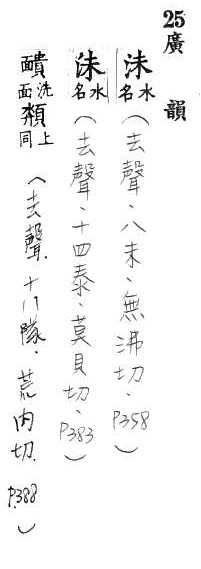 25廣韻
沬水名(去聲、八未、無沸切、P358)
沬水名(去聲、十四泰、莫貝切、P383)
靧洗面頮同上(去聲、十八隊、荒內切、P388)